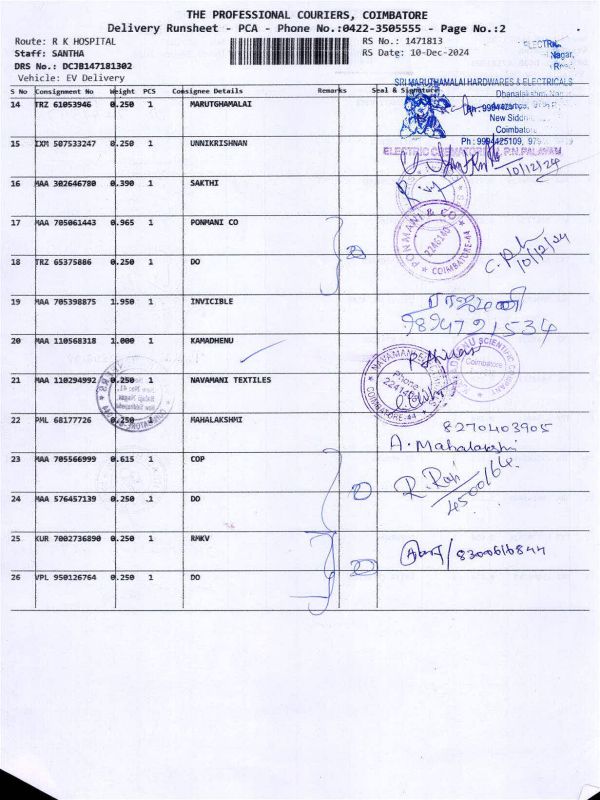 THE PROFESSIONAL COURIERS, COIMBATORE
Delivery Runsheet - PCA - Phone No.:0422-3505555 - Page No.:2
Route: R K HOSPITAL RS No.: 1471813
Staff: SANTHA RS Date: 10-Dec-2024
DRS No.: DCJB147181302
Vehicle: EV Delivery
ELECTRIC
Nagar,
Road,
SRI MARUTHAMALAI HARDWARES & ELECTRICALS
S No Consignment No Weight PCS Consignee Details Remarks Seal & Signature
14 TRZ 61053946 0.250 1 MARUTGHAMALAI
Dhanalakshmi
New
Coimbatore
Ph : 9994425109,
15 IXM 507533247 0.250 1 UNNIKRISHNAN
P.N.PALAYAM
10/12/24
16 MAA 302646780 0.390 1 SAKTHI
17 MAA 705061443 0.965 1 PONMANI CO
PONMANI & CO
COIMBATORE-44
18 TRZ 65375886 0.250 1 DO
10/12/24
19 MAA 705398875 1.950 1 INVICIBLE
9894791534
20 MAA 110568318 1.000 1 KAMADHENU
SCIENTIFIC COMPANY
Coimbatore
21 MAA 110294992 0.250 1 NAVAMANI TEXTILES
NAVAMANI
Phone
COIMBATORE-44
22 PML 68177726 0.250 1 MAHALAKSHMI
8270403905
A. Mahalakshmi
23 MAA 705566999 0.615 1 COP
24 MAA 576457139 0.250 1 DO
R. Raji
25 KUR 7002736890 0.250 1 RMKV
8300616844
26 VPL 950126764 0.250 1 DO